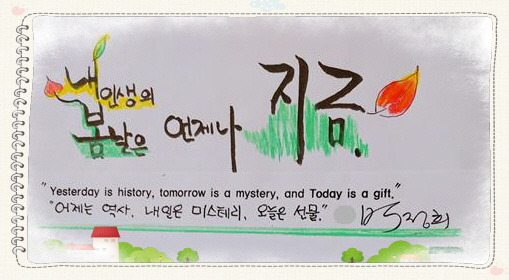 내 인생의
봄날은 언제나 지금.
"Yesterday is history, tomorrow is a mystery, and Today is a gift."
"어제는 역사, 내일은 미스테리, 오늘은 선물."